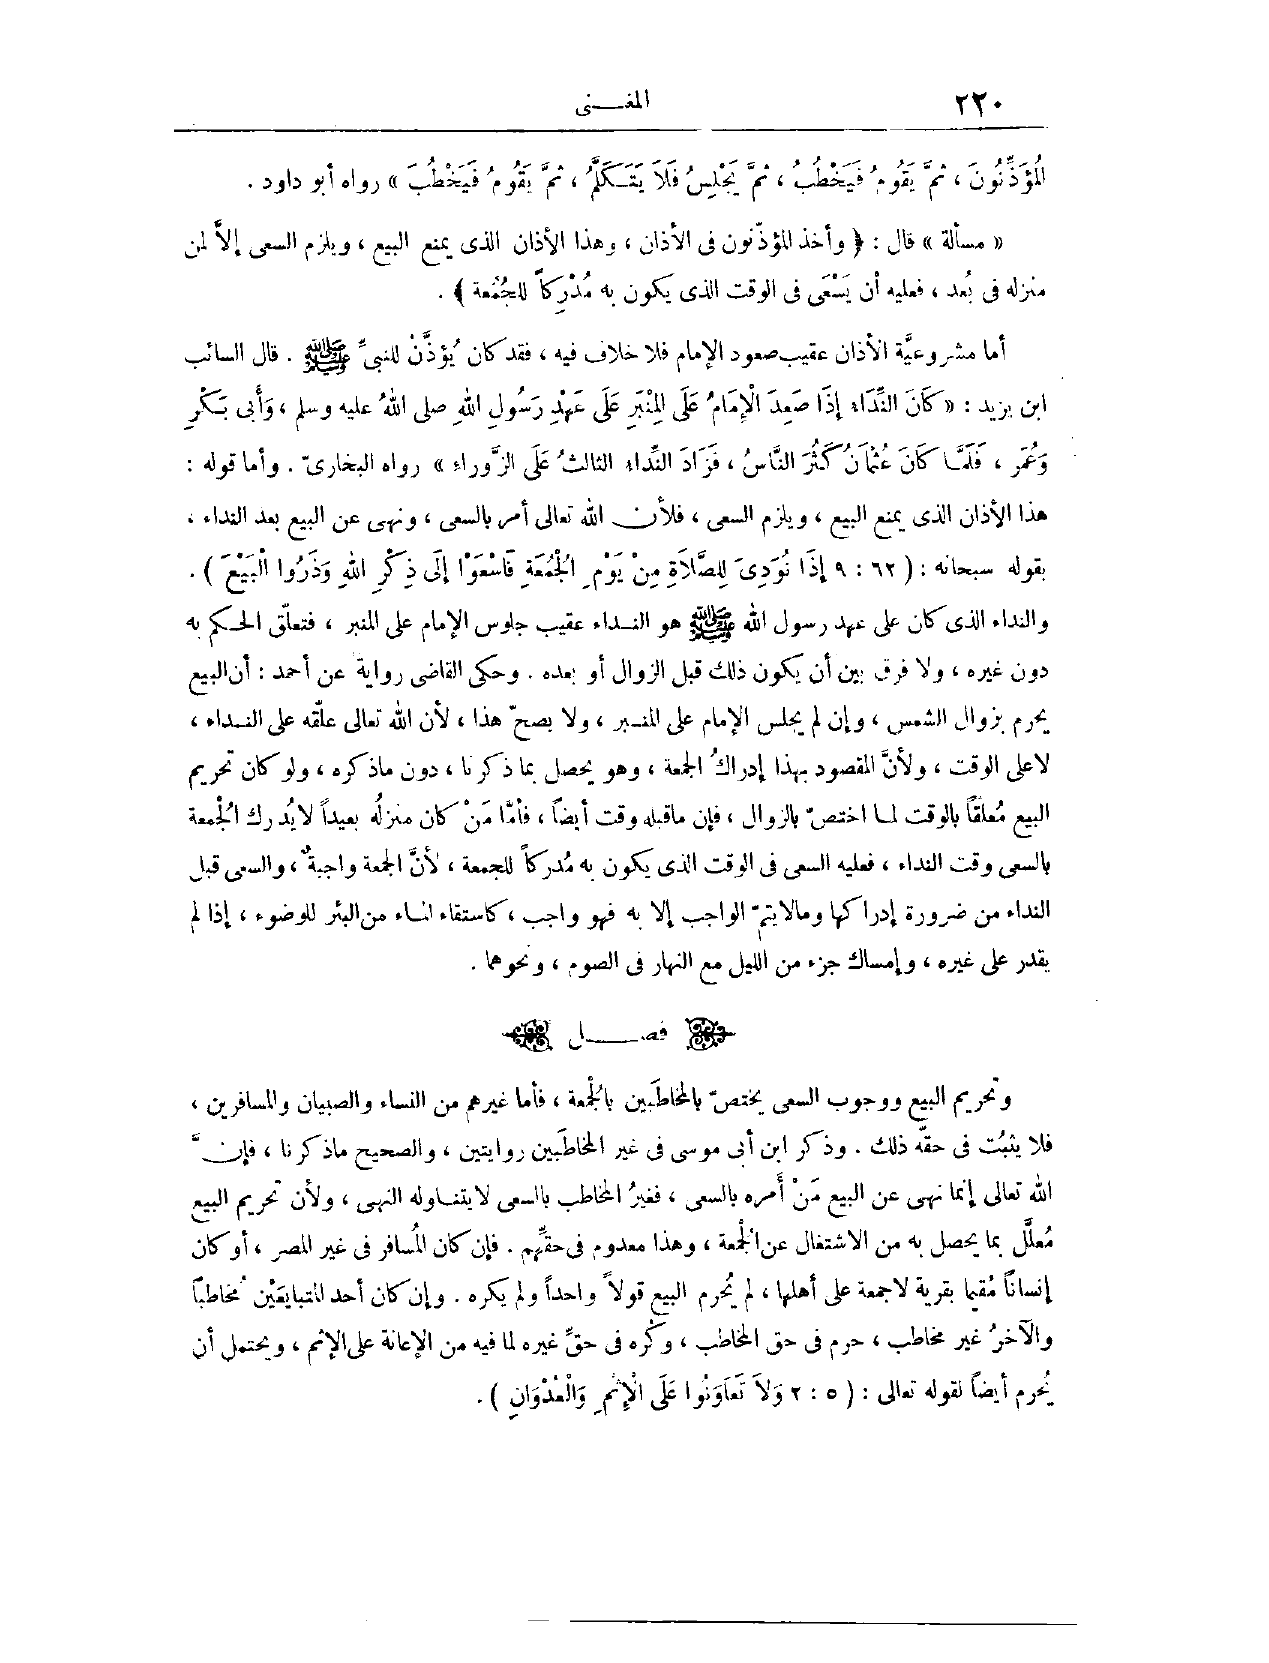 ٢٢٠
المغـــنى
الْمُؤَذِّنُونَ ، ثمَّ يَقُومُ فَيَخْطُبُ ، ثمَّ يَجْلِسُ فَلاَ يَتَـكَلَّمُ ، ثمَّ يَقُومُ فَيَخْطُبَ » رواه أبو داود .
« مسألة » قال : ﴿ وأخذ المؤذّنون فى الأذان ، وهذا الأذان الذى يمنع البيع ، ويلزم السعى إلاَّ لمن
منزله فى بُعد ، فعليه أن يَسْعَى فى الوقت الذى يكون به مُدْرِكاً للجُمُعة ﴾ .
أما مشروعيَّة الأذان عقيب صعود الإمام فلا خلاف فيه ، فقد كان يُؤذَّنْ للنبىِّ ﷺ . قال السائب
ابن يزيد : « كَانَ النِّدَاءُ إِذَا صَعِدَ الْإِمَامُ عَلَى الْمِنْبَرِ عَلَى عَهْدِ رَسُولِ اللهِ صلى اللهُ عليه وسلم ، وَأَبى بَـكْرٍ
وَعُمَر ، فَلَمَّـا كَانَ عُثْمَانُ كَثُرَ النَّاسُ ، فَزَادَ النِّدَاءَ الثالثُ عَلَى الزَّوراءِ » رواه البخارىّ . وأما قوله :
هذا الأذان الذى يمنع البيع ، ويلزم السعى ، فلأن الله تعالى أمر بالسعى ، ونهى عن البيع بعد النداء ،
بقوله سبحانه : ( ٦٢ : ٩ إِذَا نُودِىَ لِلصَّلَاةِ مِنْ يَوْمِ الْجُمُعَةِ فَاسْعَوْا إِلَى ذِكْرِ اللهِ وَذَرُوا الْبَيْعَ ) .
والنداء الذى كان على عهد رسول الله ﷺ هو النـداء عقيب جلوس الإمام على المنبر ، فتعلّق الحـكم به
دون غيره ، ولا فرق بين أن يكون ذلك قبل الزوال أو بعده . وحكى القاضى رواية عن أحمد : أن البيع
يحرم بزوال الشمس ، وإن لم يجلس الإمام على المنـبر ، ولا يصحّ هذا ، لأن الله تعالى علّقه على النـداء ،
لا على الوقت ، ولأنَّ المقصود بهذا إدراكُ الجمعة ، وهو يحصل بما ذكرنا ، دون ماذكره ، ولو كان تحريم
البيع مُعلقاً بالوقت لمـا اختصّ بالزوال ، فإن ماقبله وقت أيضاً ، فأمَّا مَنْ كان منزلُه بعيداً لا يُدرك الْجُمعة
بالسعى وقت النداء ، فعليه السعى فى الوقت الذى يكون به مُدركاً للجمعة ، لأنَّ الجمعة واجبةٌ ، والسعى قبل
النداء من ضرورة إدراكها ومالايتمّ الواجب إلا به فهو واجب ، كاستقاء الماء من البئر للوضوء ، إذا لم
يقدر على غيره ، وإمساك جزء من الليل مع النهار فى الصوم ، ونحوهما .
فصـــــل
وتحريم البيع ووجوب السعى يختصّ بالمخاطَبين بالْجُمعة ، فأما غيرهم من النساء والصبيان والمسافرين ،
فلا يثبُت فى حقّه ذلك . وذكر ابن أبى موسى فى غير المخاطَبين روايتين ، والصحيح ماذكرنا ، فإنَّ
الله تعالى إنما نهى عن البيع مَنْ أَمره بالسعى ، فغيرُ المخاطب بالسعى لا يتنـاوله النهى ، ولأن تحريم البيع
مُعلَّل بما يحصل به من الاشتغال عن الْجُمعة ، وهذا معدوم فى حقِّهم . فإن كان الْمُسافر فى غير المصر ، أو كان
إنساناً مُقيما بقرية لا جمعة على أهلها ، لم يُحرم البيع قولاً واحداً ولم يكره . وإن كان أحد المتبايعَيْن مُخاطباً
والآخرُ غير مخاطب ، حرم فى حق المخاطب ، وكُره فى حقِّ غيره لما فيه من الإعانة على الإثم ، ويحتمل أن
يُحرم أيضاً لقوله تعالى : ( ٥ : ٢ وَلاَ تَعَاوَنُوا عَلَى الْإِثْمِ وَالْعُدْوَانِ ) .